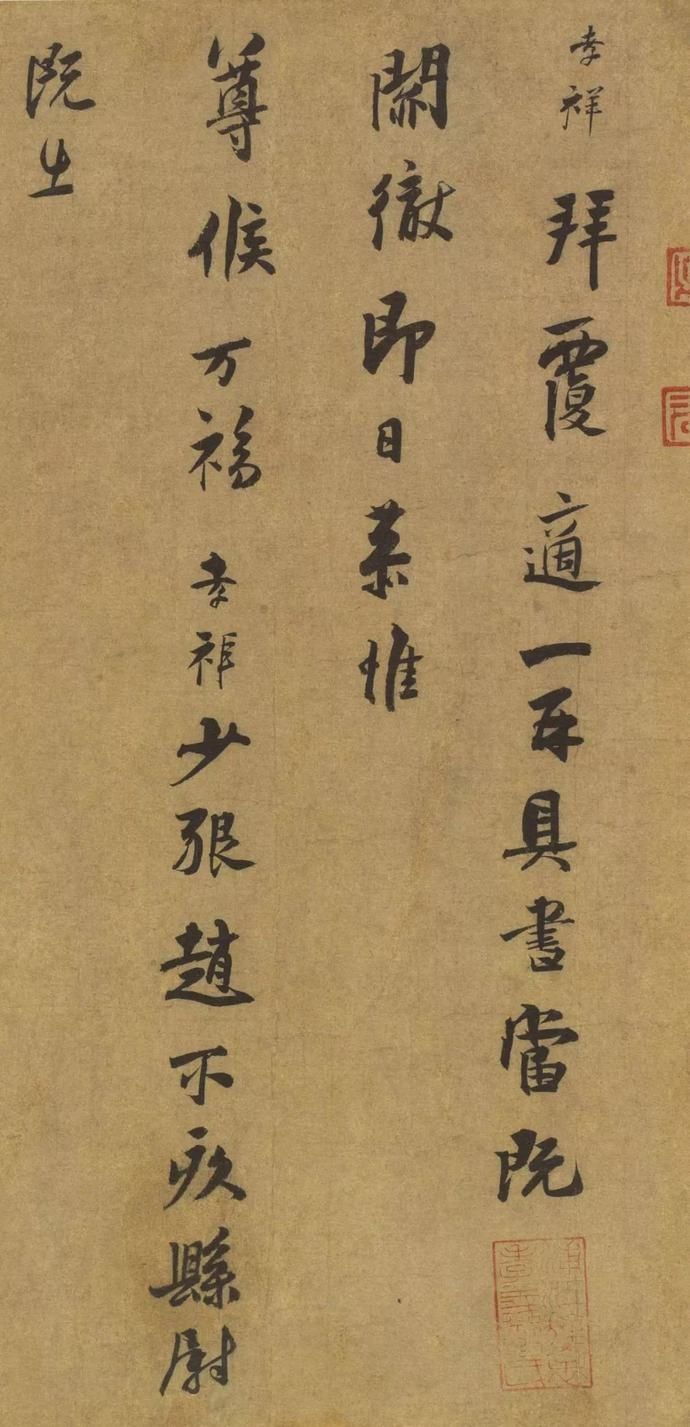 孝祥拜覆適一再具書當既
關徹即日恭惟
尊候万福孝祥少趙不疚縣尉
既出